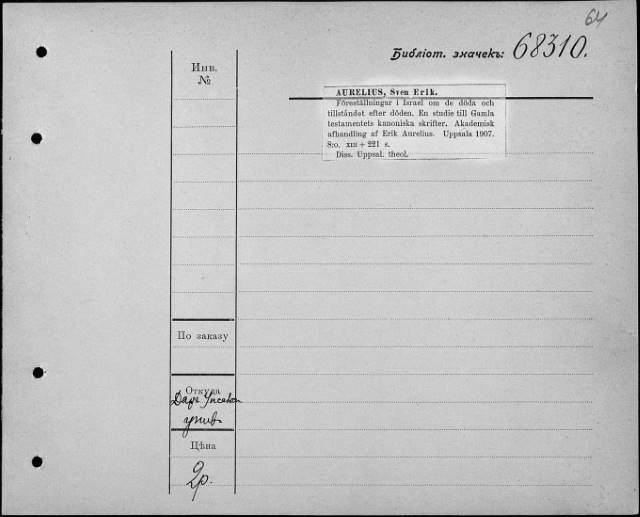 64
Библіот. значекъ: 68310.
Инв.
№
AURELIUS, Sven Erik.
Föreställningar i Israel om de döda och
tillståndet efter döden. En studie till Gamla
testamentets kanoniska skrifter. Akademisk
afhandling af Erik Aurelius. Uppsala 1907.
8:o. XIII + 221 s.
Diss. Uppsal. theol.
По заказу
Откуда
Даръ
унив.
Цѣна
2р.